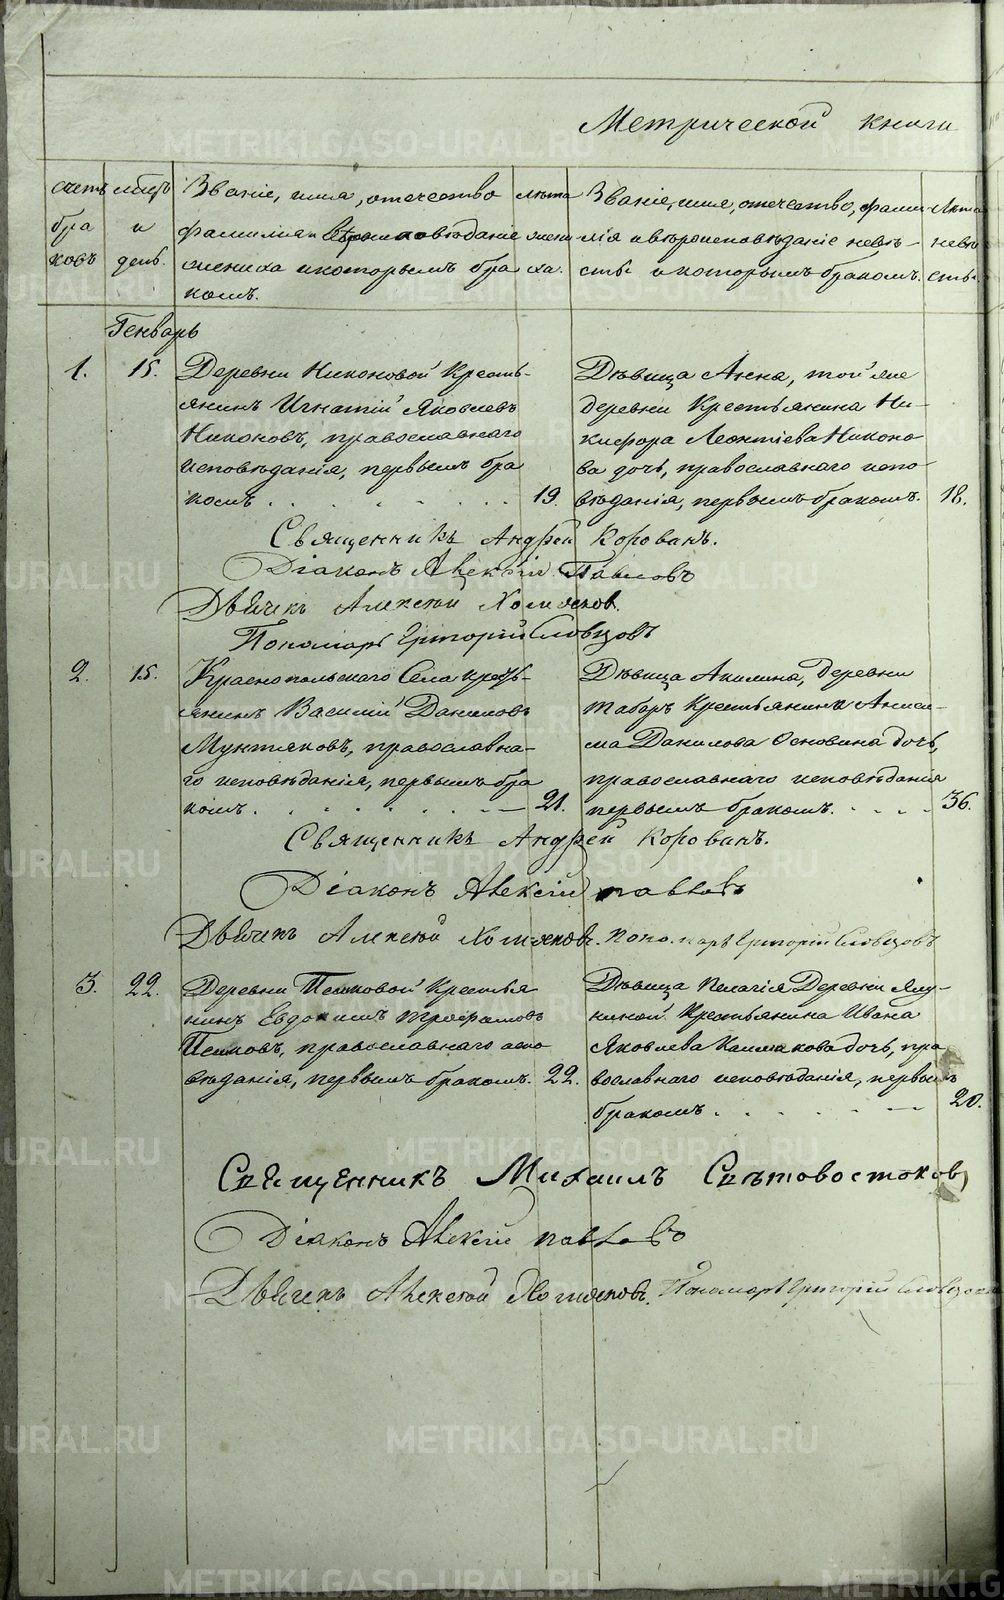 Метрической книги
счетъ
бра
ковъ
мѣсцъ
и
день.
Званіе, имя, отечество
фамилія и вѣроисповѣданіе
жениха и которымъ бра
комъ.
лѣта
жени
ха.
Званіе, имя, отечество, фами
лія и вѣроисповѣданіе невѣ-
сты и которымъ бракомъ.
Лѣта
невѣ
сты.
Генварь
1. 15. Деревни Никоновой Кресть-
янинъ Игнатій Яковлевъ
Никоновъ, православнаго
исповѣданія, первымъ бра
комъ 19.
Дѣвица Анна, той же
деревни Крестьянина Ни-
кифора Леонтіева Никоно
ва дочь, православнаго испо
вѣданія, первымъ бракомъ. 18.
Священникъ Андрей Корованъ.
Діаконъ Алексій Павловъ
Дьячекъ Алексѣй Хомяковъ.
Пономарь Григорій Словцовъ
2. 15. Краснопольскаго Села кресть-
янинъ Василій Даниловъ
Мунтяковъ, православна-
го исповѣданія, первымъ бра
комъ. 21.
Дѣвица Акилина, деревни
Табаръ Крестьянина Аниси-
ма Данилова Основина дочь,
православнаго исповѣданія
первымъ бракомъ. 36.
Священникъ Андрей Корованъ.
Діаконъ Алексій павловъ
Дьячекъ Алексѣй Хомяковъ. пономарь Григорій Словцовъ
3. 22. Деревни Псиковой Крестья
нинъ Евдокимъ Трофимовъ
Псиковъ, православнаго испо
вѣданія, первымъ бракомъ. 22.
Дѣвица Пелагія ДеревниЯлу-
ниной Крестьянина Ивана
Яковлева Калмакова дочь, пра
вославнаго исповѣданія, первымъ
бракомъ 20.
Священникъ Михаилъ Свѣтовостоковъ
Діаконъ Алексій павловъ
Дьячекъ Алексѣй Хомяковъ. Пономарь Григорій Словцовъ
METRIKI.GASO-URAL.RU